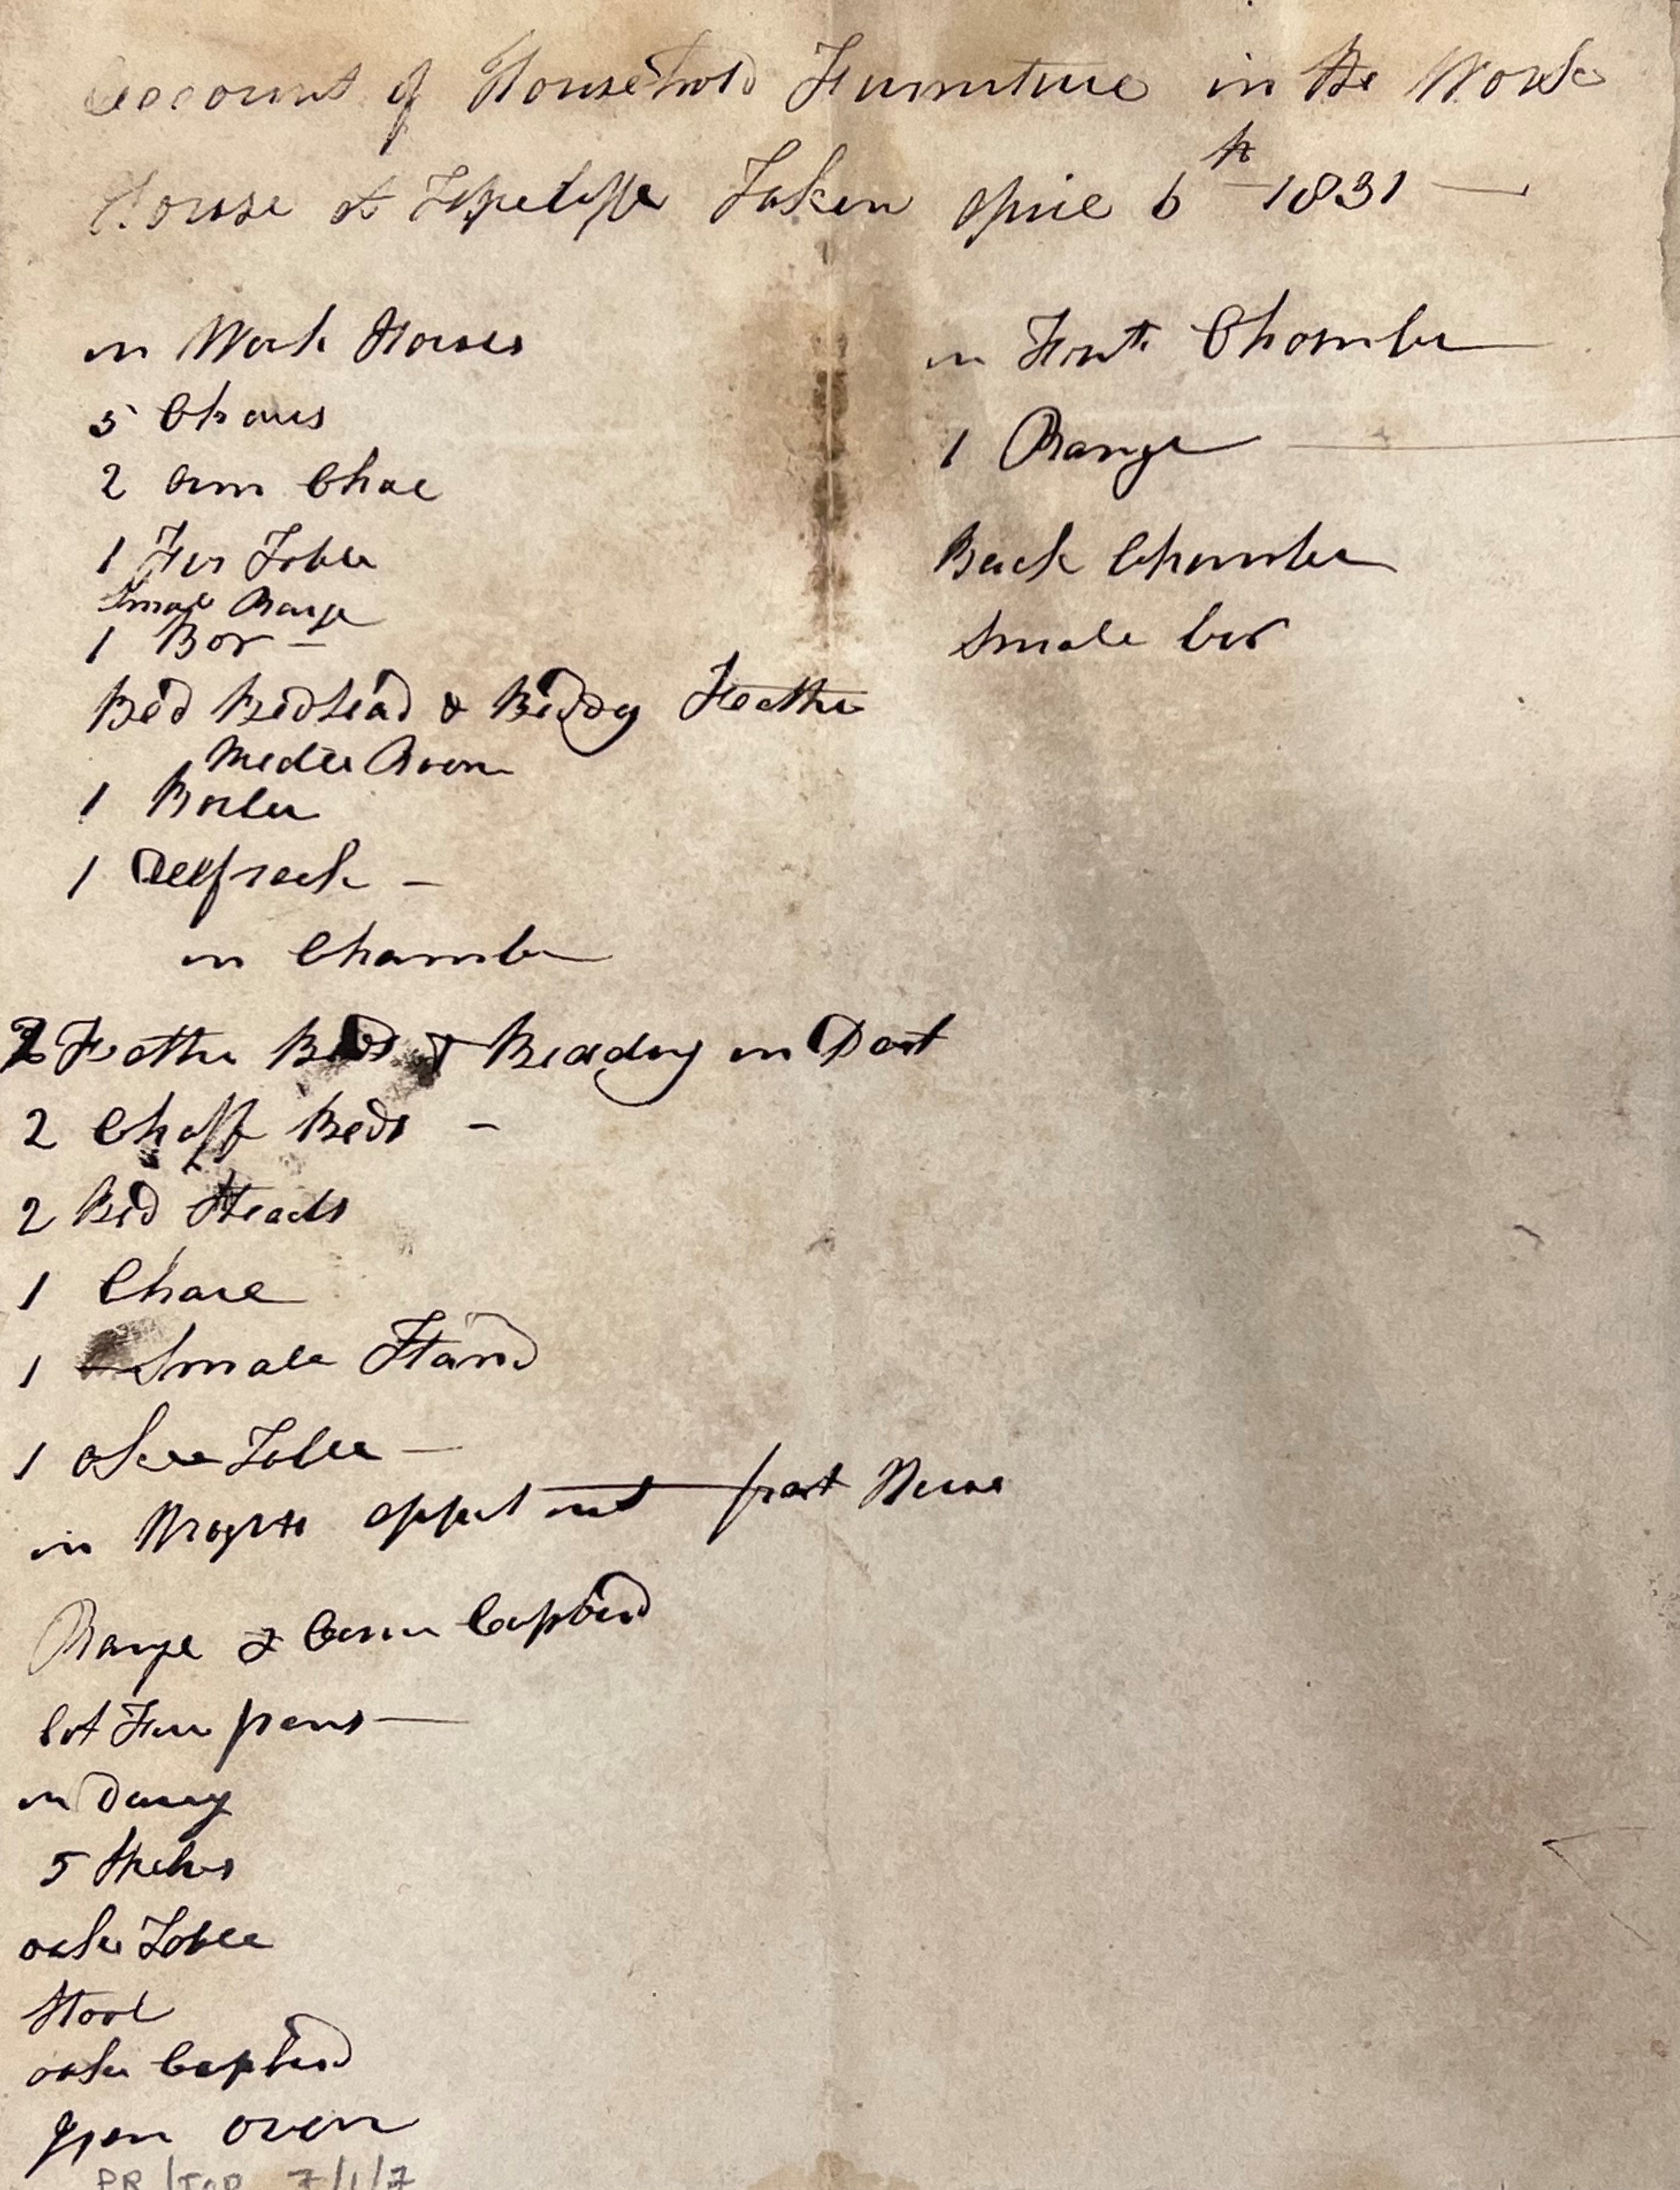 account of Household Furniture in the Work
House at Taken April 6th 1831 —
in Work House
5 Chairs
2 arm Chae
1 Fir Table
Smale Range
1 Box —
Bed Bedstead & Bedding Feather
Medle Room
1 Boiler
1 Delf rack —
in Chamber
2 Feather Beds & Bedding in Part
2 Chaff Beds —
2 Bed Steads
1 Chare
1 Smale Stand
1 oke Table —
in front House
Range & Corner Cupbord
lot pans —
in Dairy
5 Shelves
oake Table
Stool
oake Cupbord
Iron oven
PR/TOP 7/1/7
in Front Chamber
1 Range
Back Chamber
Smale